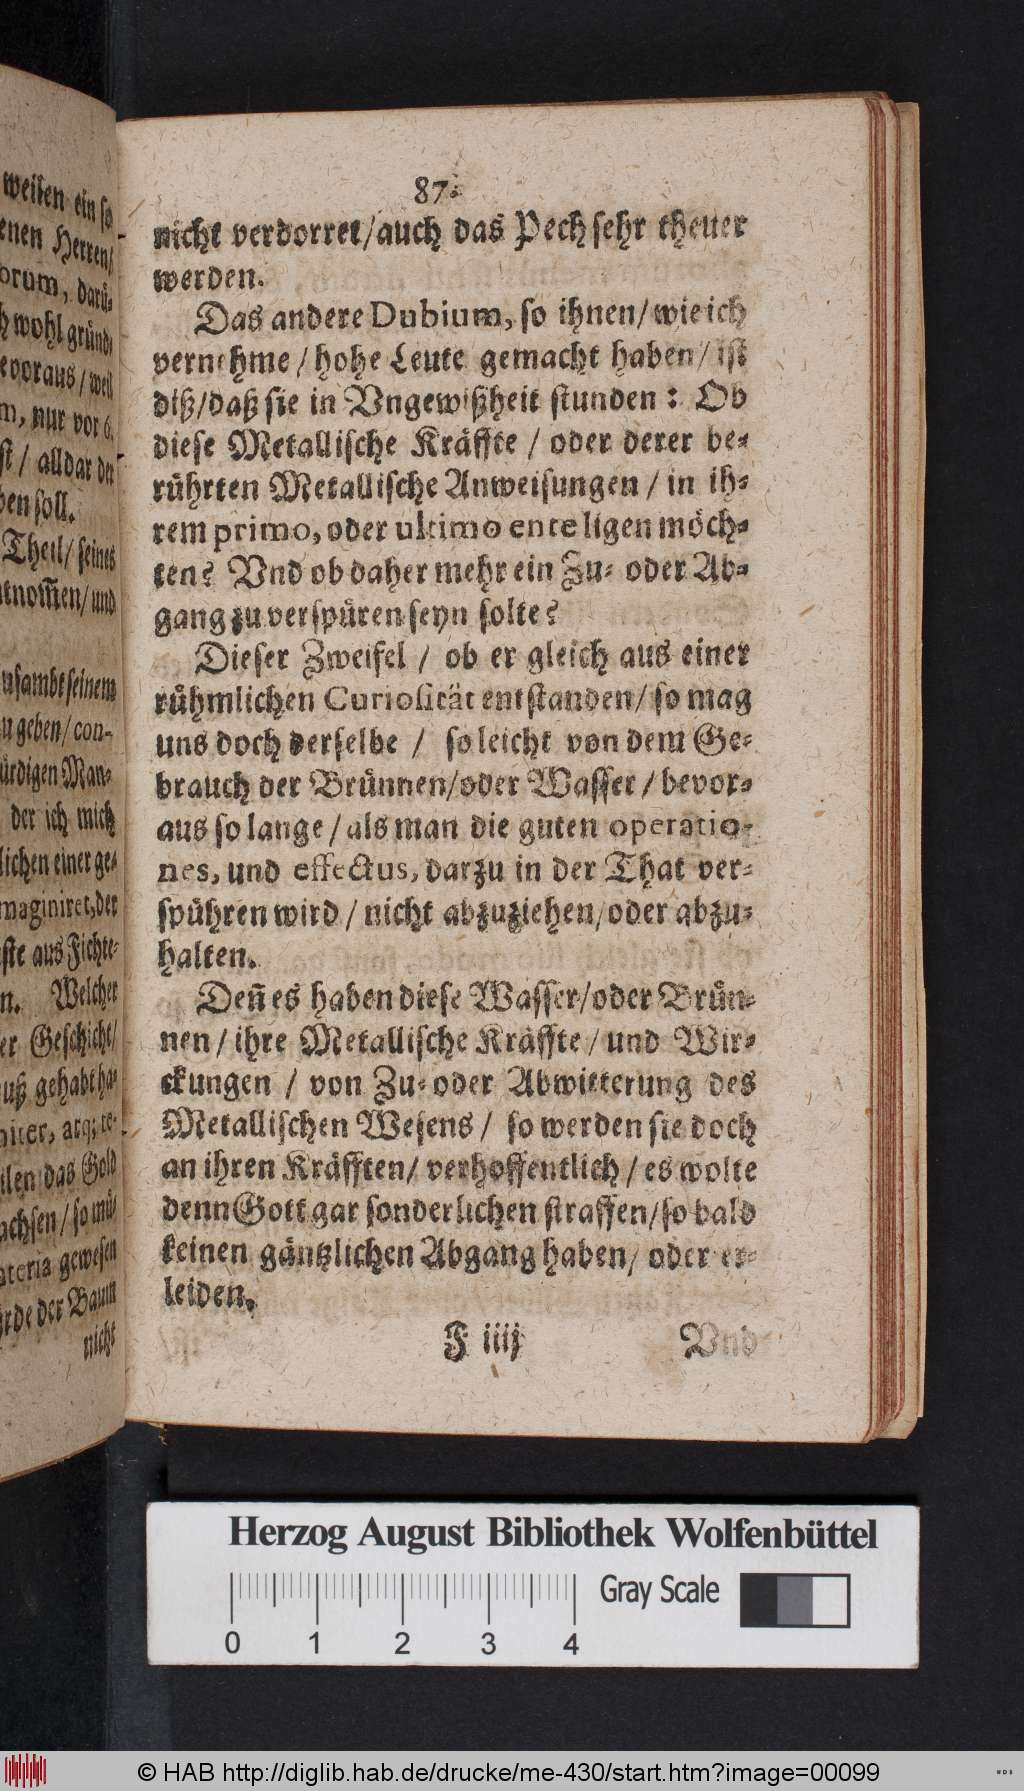 weilen ein so
enen Herren/
orum, darü-
h wohl gründ-
evoraus/weil
m, nur vor 6.
st / alldar der
ben soll.
Theil/ seines
tnom̃en/ und
usambt seinem
zu geben/ con-
ürdigen Man-
der ich mich
lichen einer ge-
maginiret, der
ste aus Fichte-
n. Welcher
er Geschicht/
uß gehabt ha-
niter, atq; re-
ilen das Gold
achsen/ so mü-
ateria gewesen
ürde der Baum
nicht
87.
nicht verdorret/auch das Pech sehr theuer
werden.
Das andere Dubium, so ihnen/ wie ich
vernehme / hohe Leute gemacht haben/ ist
diß/daß sie in Vngewißheit stunden: Ob
diese Metallische Kräffte / oder derer be-
rührten Metallische Anweisungen / in ih-
rem primo, oder ultimo ente ligen möch-
ten? Vnd ob daher mehr ein Zu- oder Ab-
gang zu verspüren seyn solte?
Dieser Zweifel / ob er gleich aus einer
rühmlichen Curiosität entstanden/ so mag
uns doch derselbe / so leicht von dem Ge-
brauch der Brünnen/oder Wasser / bevor-
aus so lange / als man die guten operatio-
nes, und effectus, darzu in der That ver-
spühren wird / nicht abzuziehen/oder abzu-
halten.
Deñ es haben diese Wasser/oder Brün-
nen / ihre Metallische Kräffte / und Wir-
ckungen / von Zu- oder Abwitterung des
Metallischen Wesens / so werden sie doch
an ihren Kräfften/ verhoffentlich / es wolte
denn Gott gar sonderlichen straffen/so bald
keinen gäntzlichen Abgang haben/ oder er-
leiden.
F iiij Vnd
Herzog August Bibliothek Wolfenbüttel
Gray Scale
0 1 2 3 4
© HAB http://diglib.hab.de/drucke/me-430/start.htm?image=00099